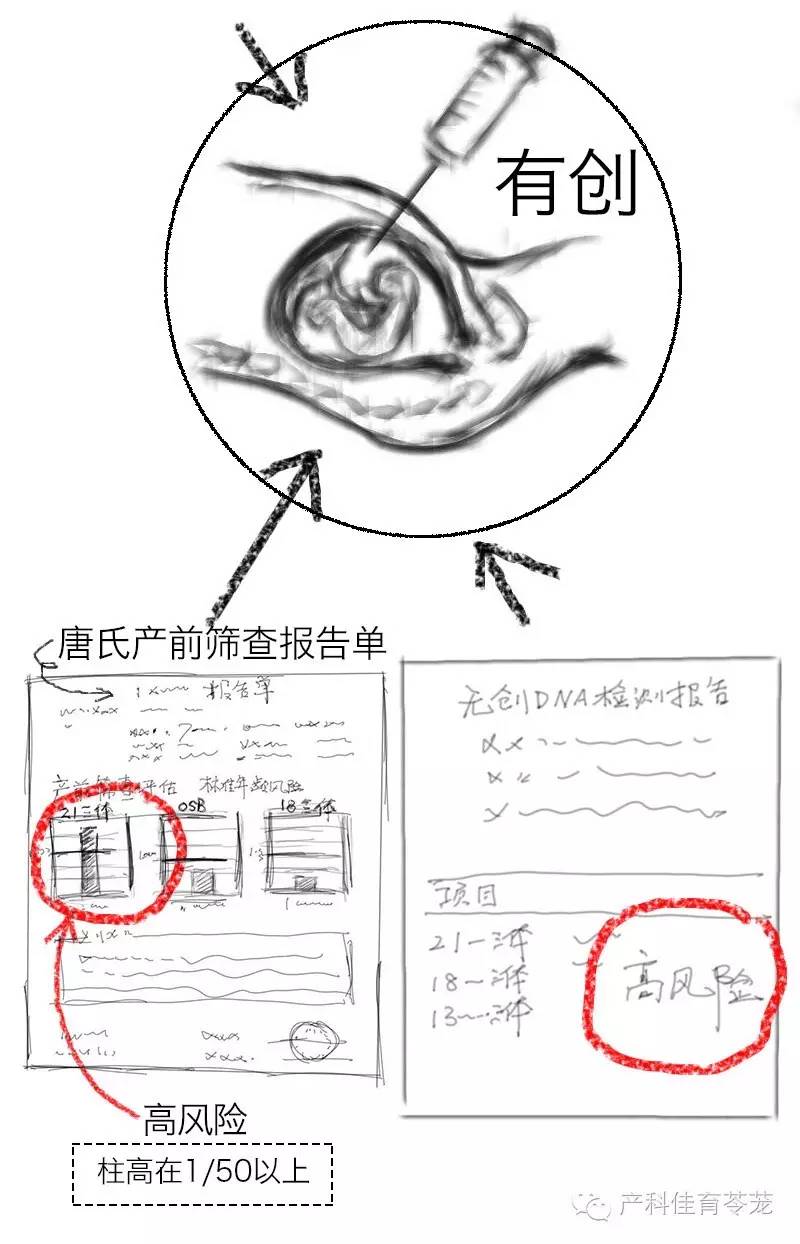 有创
唐氏产前筛查报告单
报告单
产前筛查评估 标准年龄风险
21三体 OSB 18三体
高风险
柱高在1/50以上
无创DNA检测报告
项目
21-三体
18-三体
13-三体
高风险
产科佳育苓茏